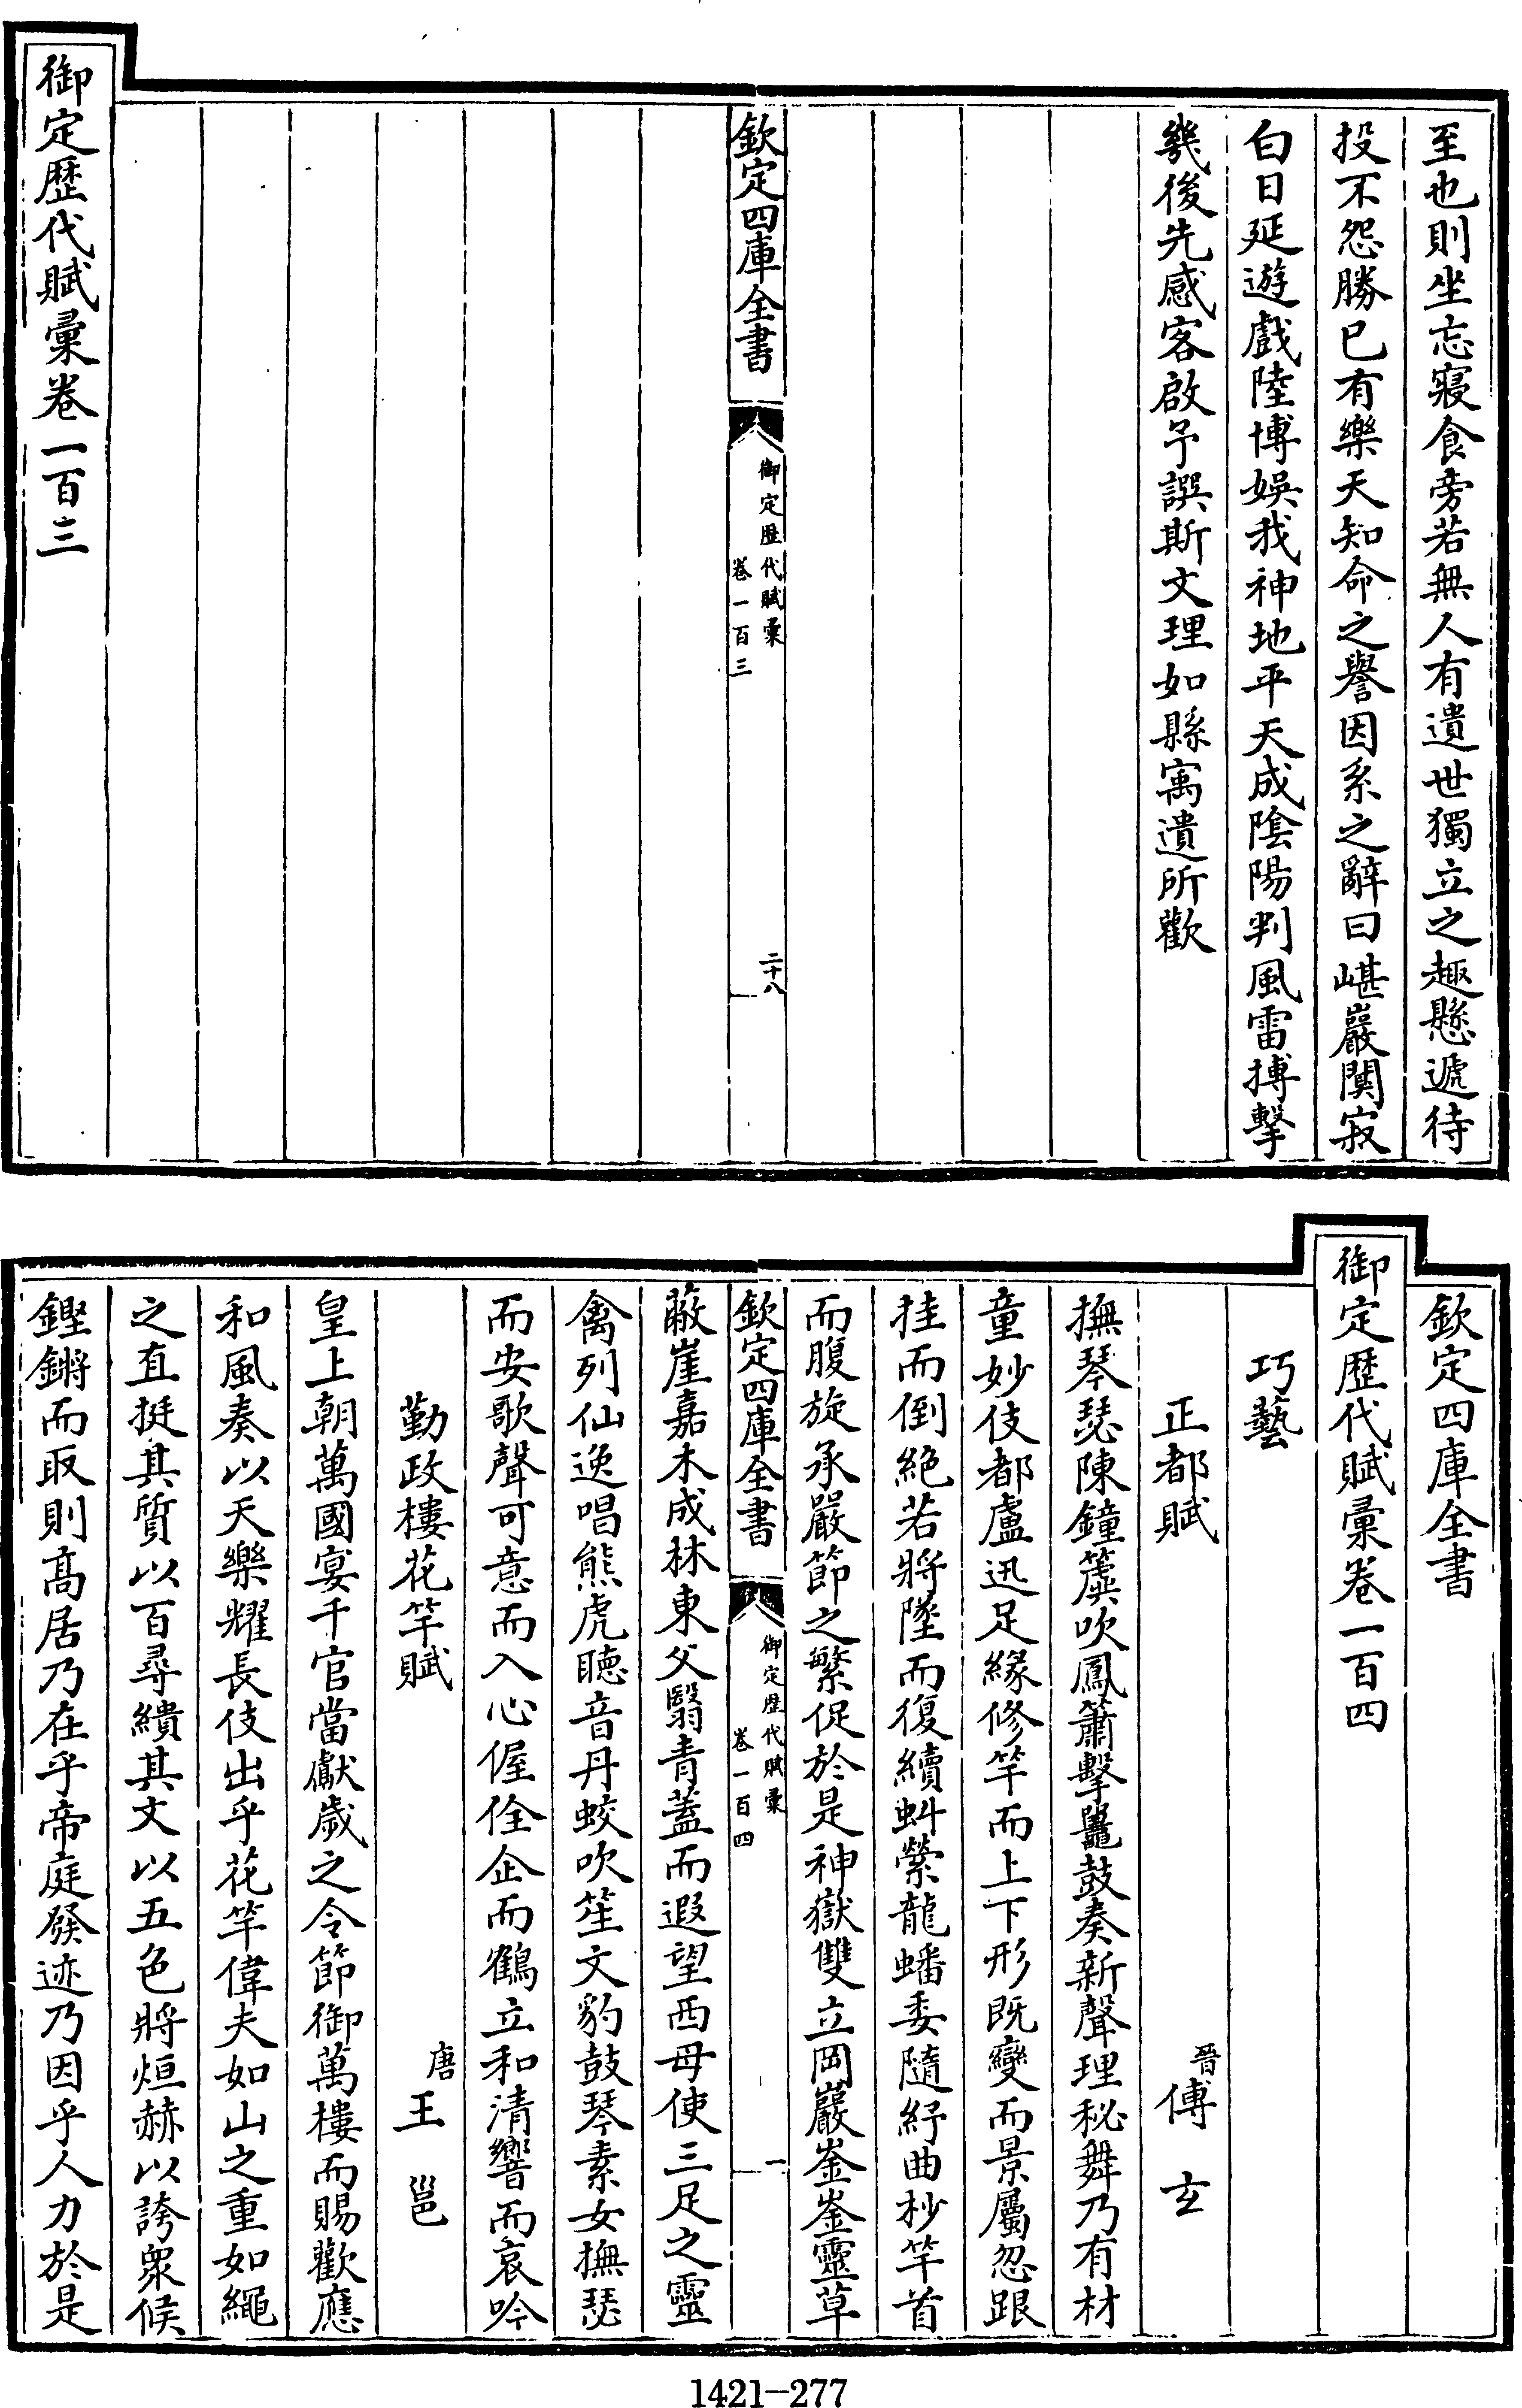 至也則坐忘寢食旁若無人有遺世獨立之趣懸遞待
投不怨勝已有樂天知命之譽因系之辭曰嵁巖闃寂
白日延遊戲陸博娛我神地平天成陰陽判風雷搏擊
幾後先感客啟予譔斯文理如縣寓遺所歡
欽定四庫全書
御定歷代賦彙
卷一百三
二十八
御定歷代賦彙卷一百三
欽定四庫全書
御定歷代賦彙卷一百四
巧藝
正都賦 晉傅玄
撫琴瑟陳鐘簴吹鳳簫擊鼉鼓奏新聲理秘舞乃有材
童妙伎都盧迅足緣修竿而上下形既變而景屬忽跟
挂而倒絕若將墜而復續虯縈龍蟠委隨紆曲杪竿首
而腹旋承嚴節之繁促於是神嶽雙立岡巖崟崟靈草
欽定四庫全書
御定歷代賦彙
卷一百四
一
蔽崖嘉木成林東父翳青蓋而遐望西母使三足之靈
禽列仙逸唱熊虎聽音丹蛟吹笙文豹鼓琴素女撫瑟
而安歌聲可意而入心偓佺企而鶴立和清響而哀吟
勤政樓花竿賦 唐王邕
皇上朝萬國宴千官當獻歲之令節御萬樓而賜歡應
和風奏以天樂耀長伎出乎花竿偉夫如山之重如繩
之直挺其質以百尋繢其文以五色將烜赫以誇眾候
鏗鏘而取則高居乃在乎帝庭發迹乃因乎人力於是
1421-277